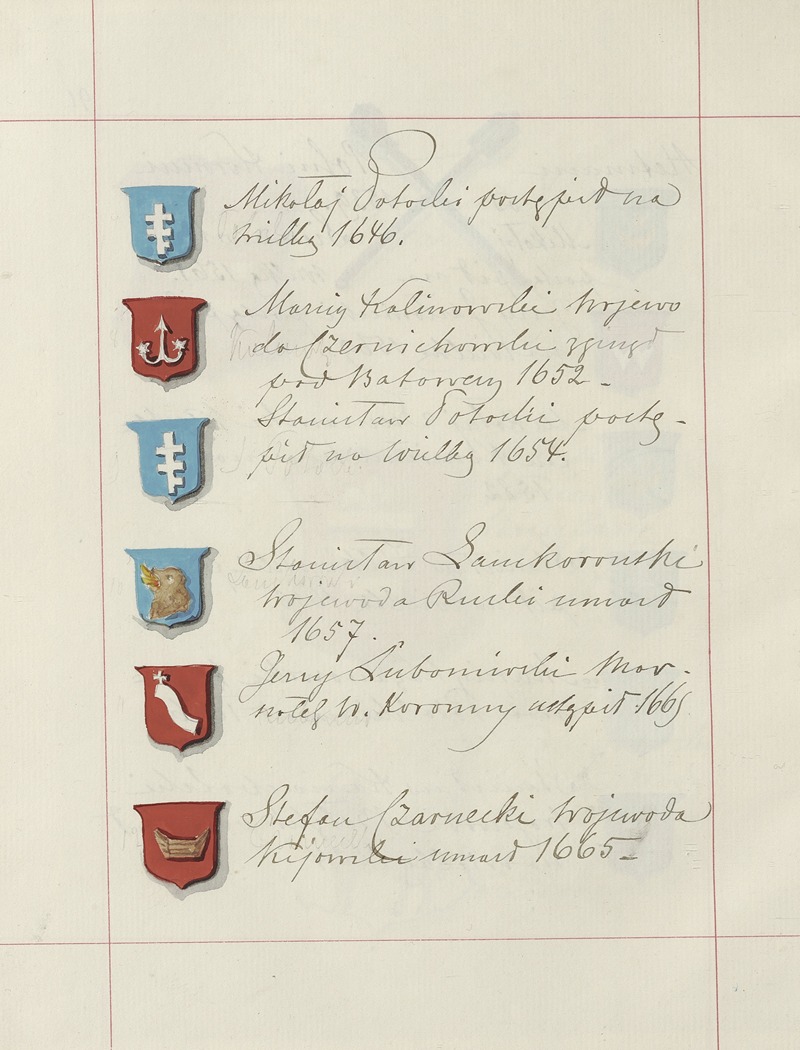 Mikołaj Potocki postąpił na
wielką 1646.
Marcin Kalinowski wojewo
da Czernichowski zginął
pod Batowem 1652 -
Stanisław Potocki postą -
pił na wielką 1654.
Stanisław Lanckoroński
wojewoda Ruski umarł
1657.
Jerzy Lubomirski Mar -
szałek W. Koronny ustąpił 1665
Stefan Czarnecki wojewoda
Kijowski umarł 1665 -